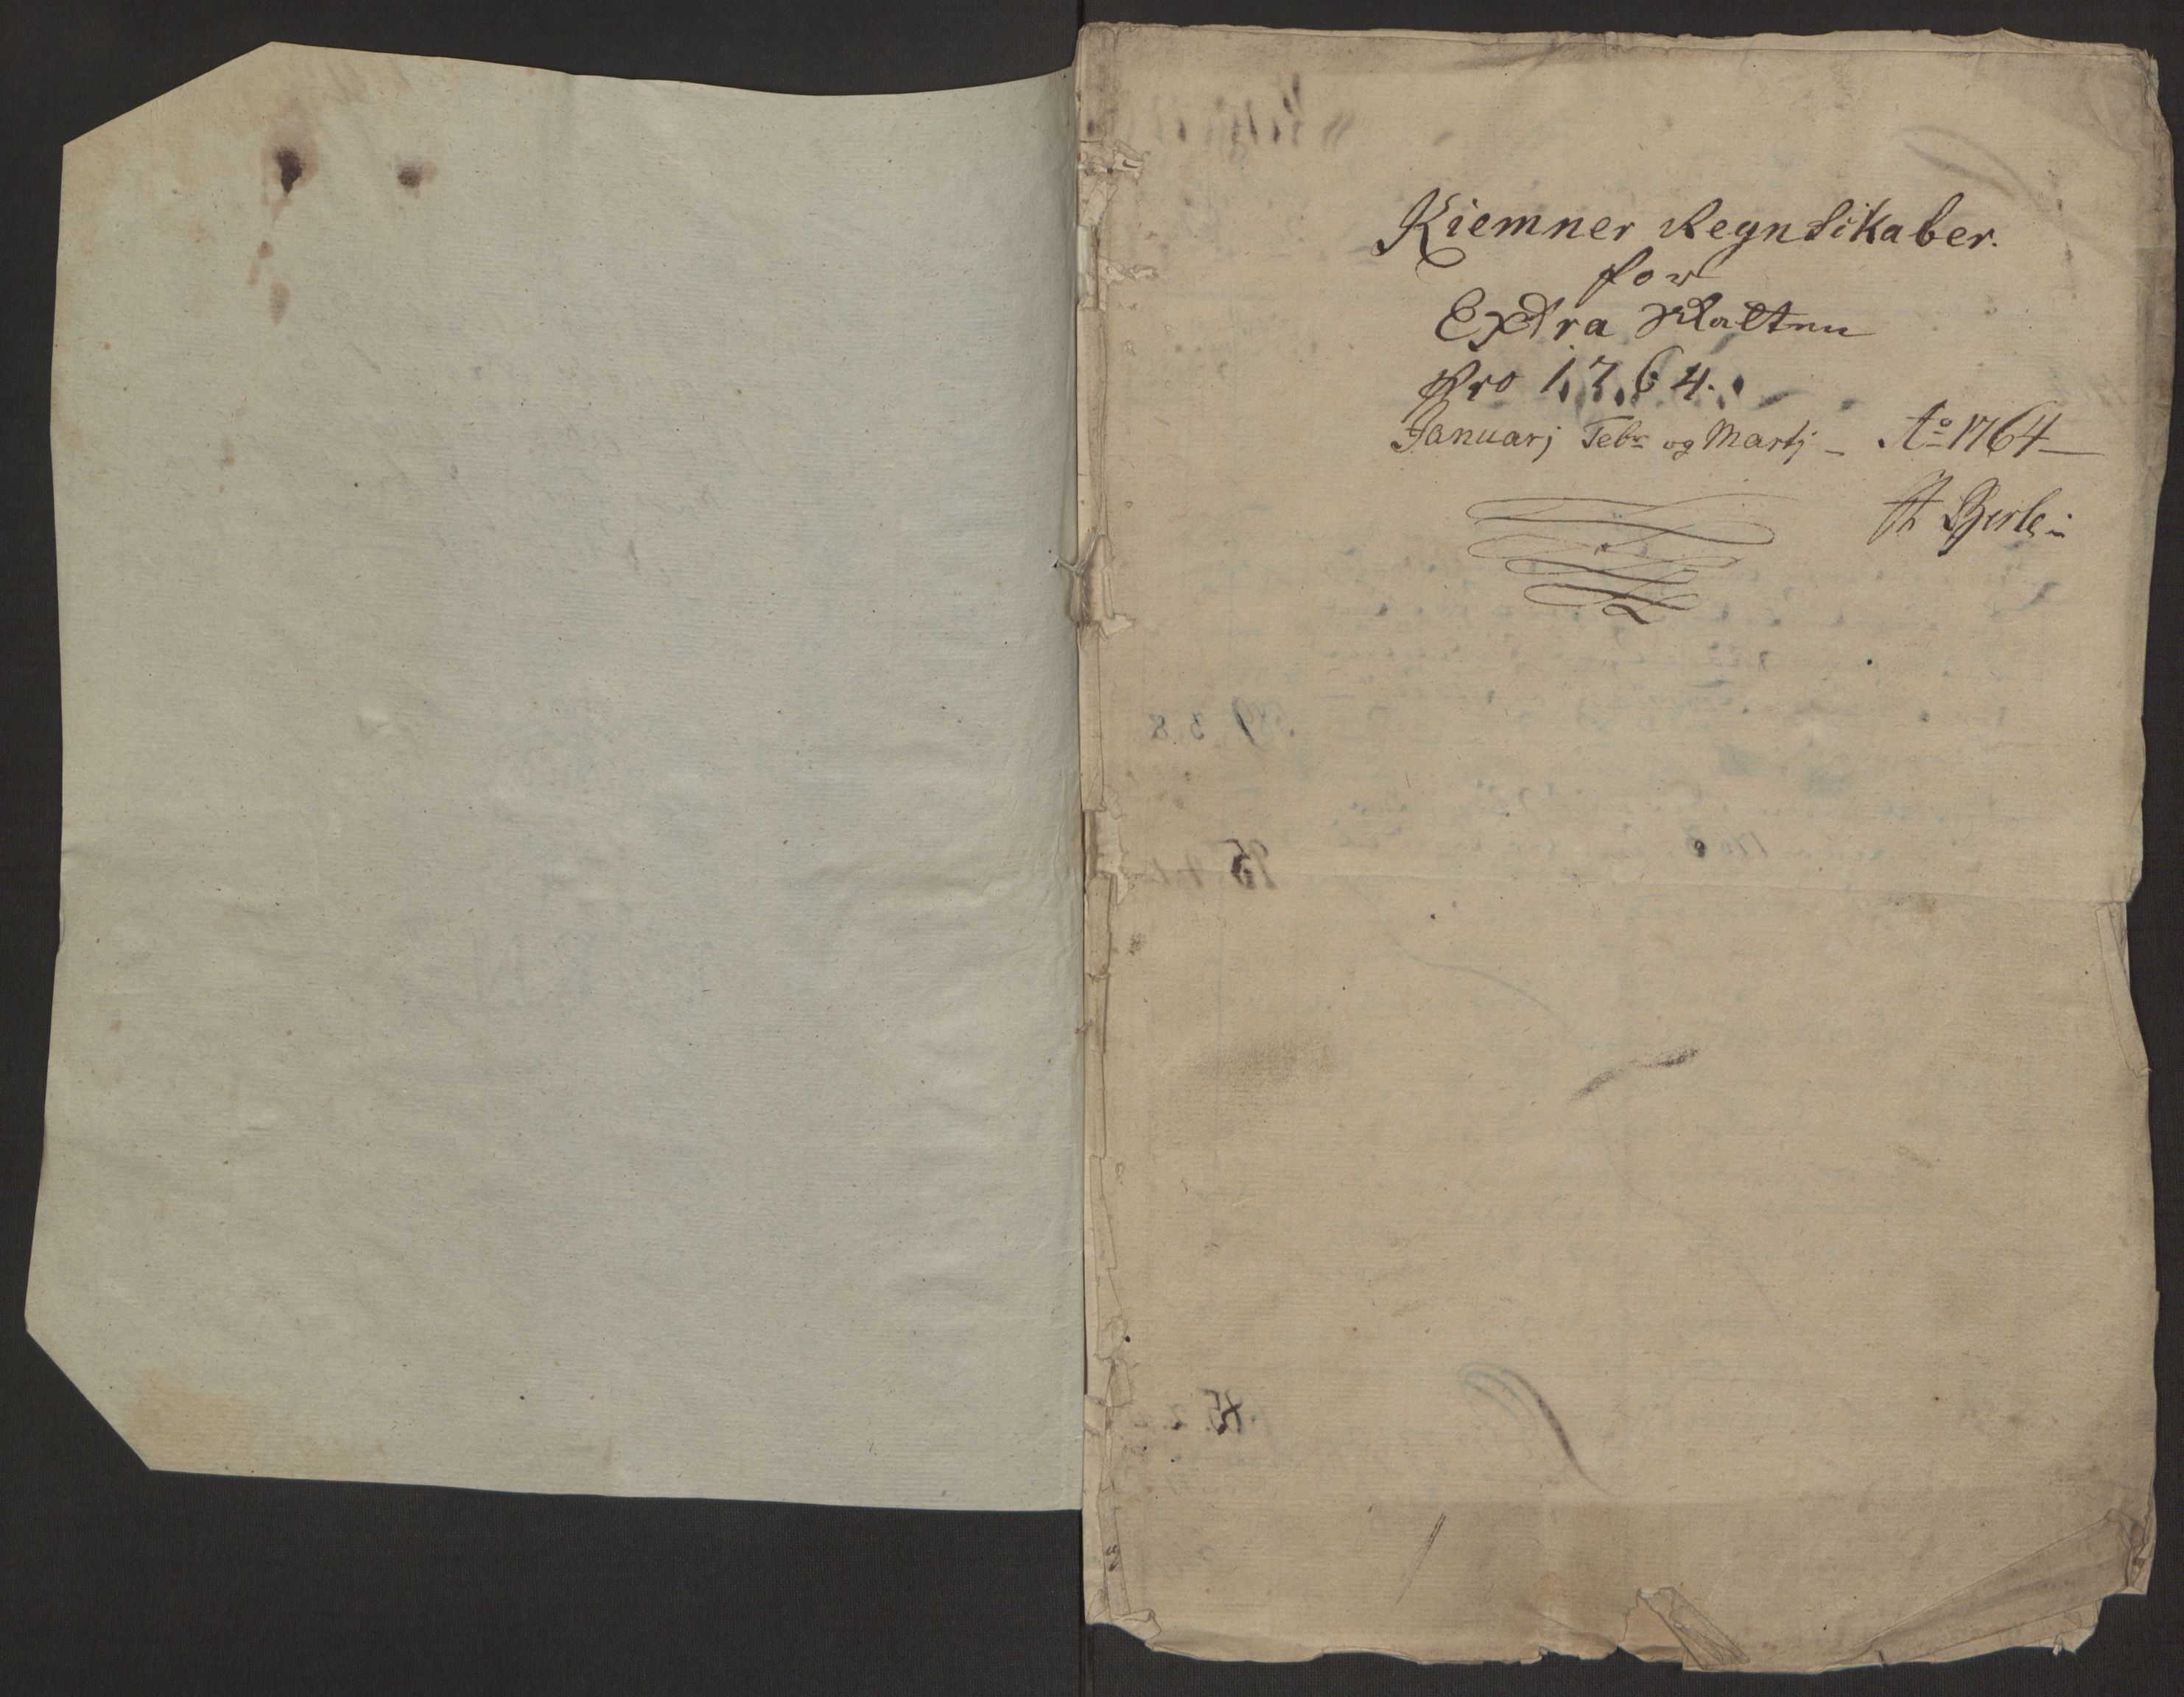 Kiemner Regnskaber.
for
Extra Skatten
Pro 1764.
Januarj Febr og Martj - Ao 1764